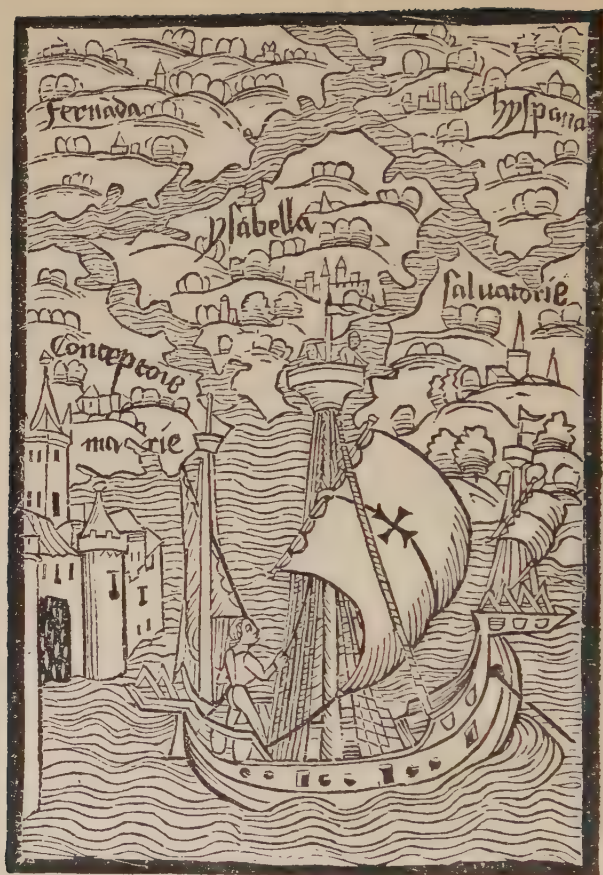 Fernãda
hyspana
ysabella
saluatorie
Conceptoie
marie